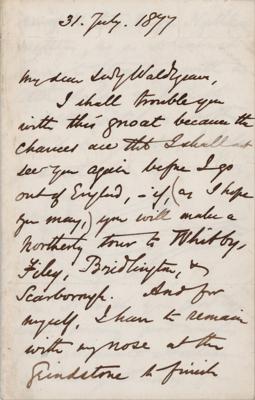 31. July. 1877
My dear Lady Waldegrave,
I shall trouble you
with this
because the
chances are tht I shall not
see you again before I go
out of England, - if, (as I hope
you may,) you will make a
Northerly tour to Whitby,
Filey, Bridlington, &
Scarborough. And for
myself, I have to remain
with my nose at the
Grindstone to finish